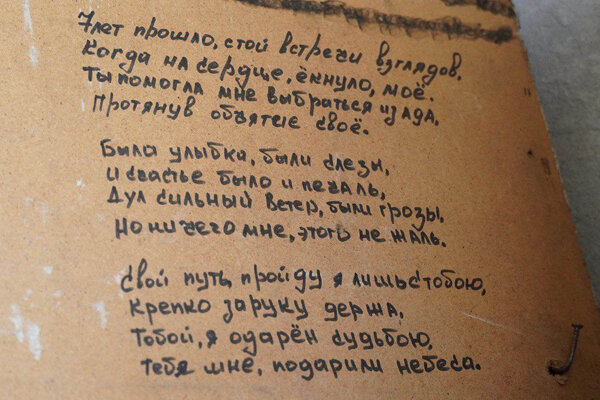 7лет прошло, стой встречи взглядов.
Когда на сердце, ёкнуло, моё.
Ты помогла мне выбраться из ада,
Протянув объятие своё.
Была улыбка, были слезы,
и счастье было и печаль,
Дул сильный ветер, были грозы,
Но ничего мне, этого не жаль.
Свой путь, пройду я лишьстобою,
Крепко заруку держа,
Тобой, я одарён судьбою,
Тебя мне, подарили небеса.